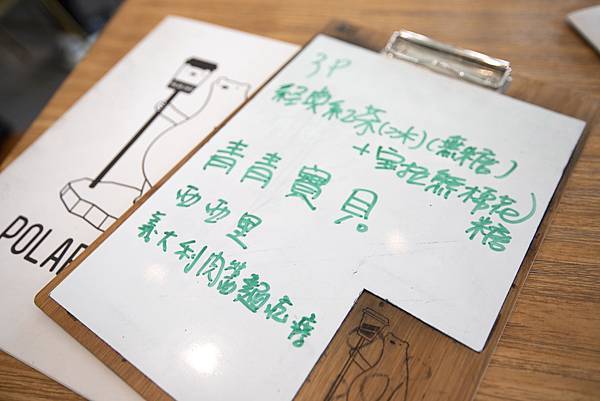 3P
經典紅茶(冰)(無糖)
+蜜拉熊棉花糖)
青青寶貝
西西里
義大利肉醬麵疙瘩
POLAR